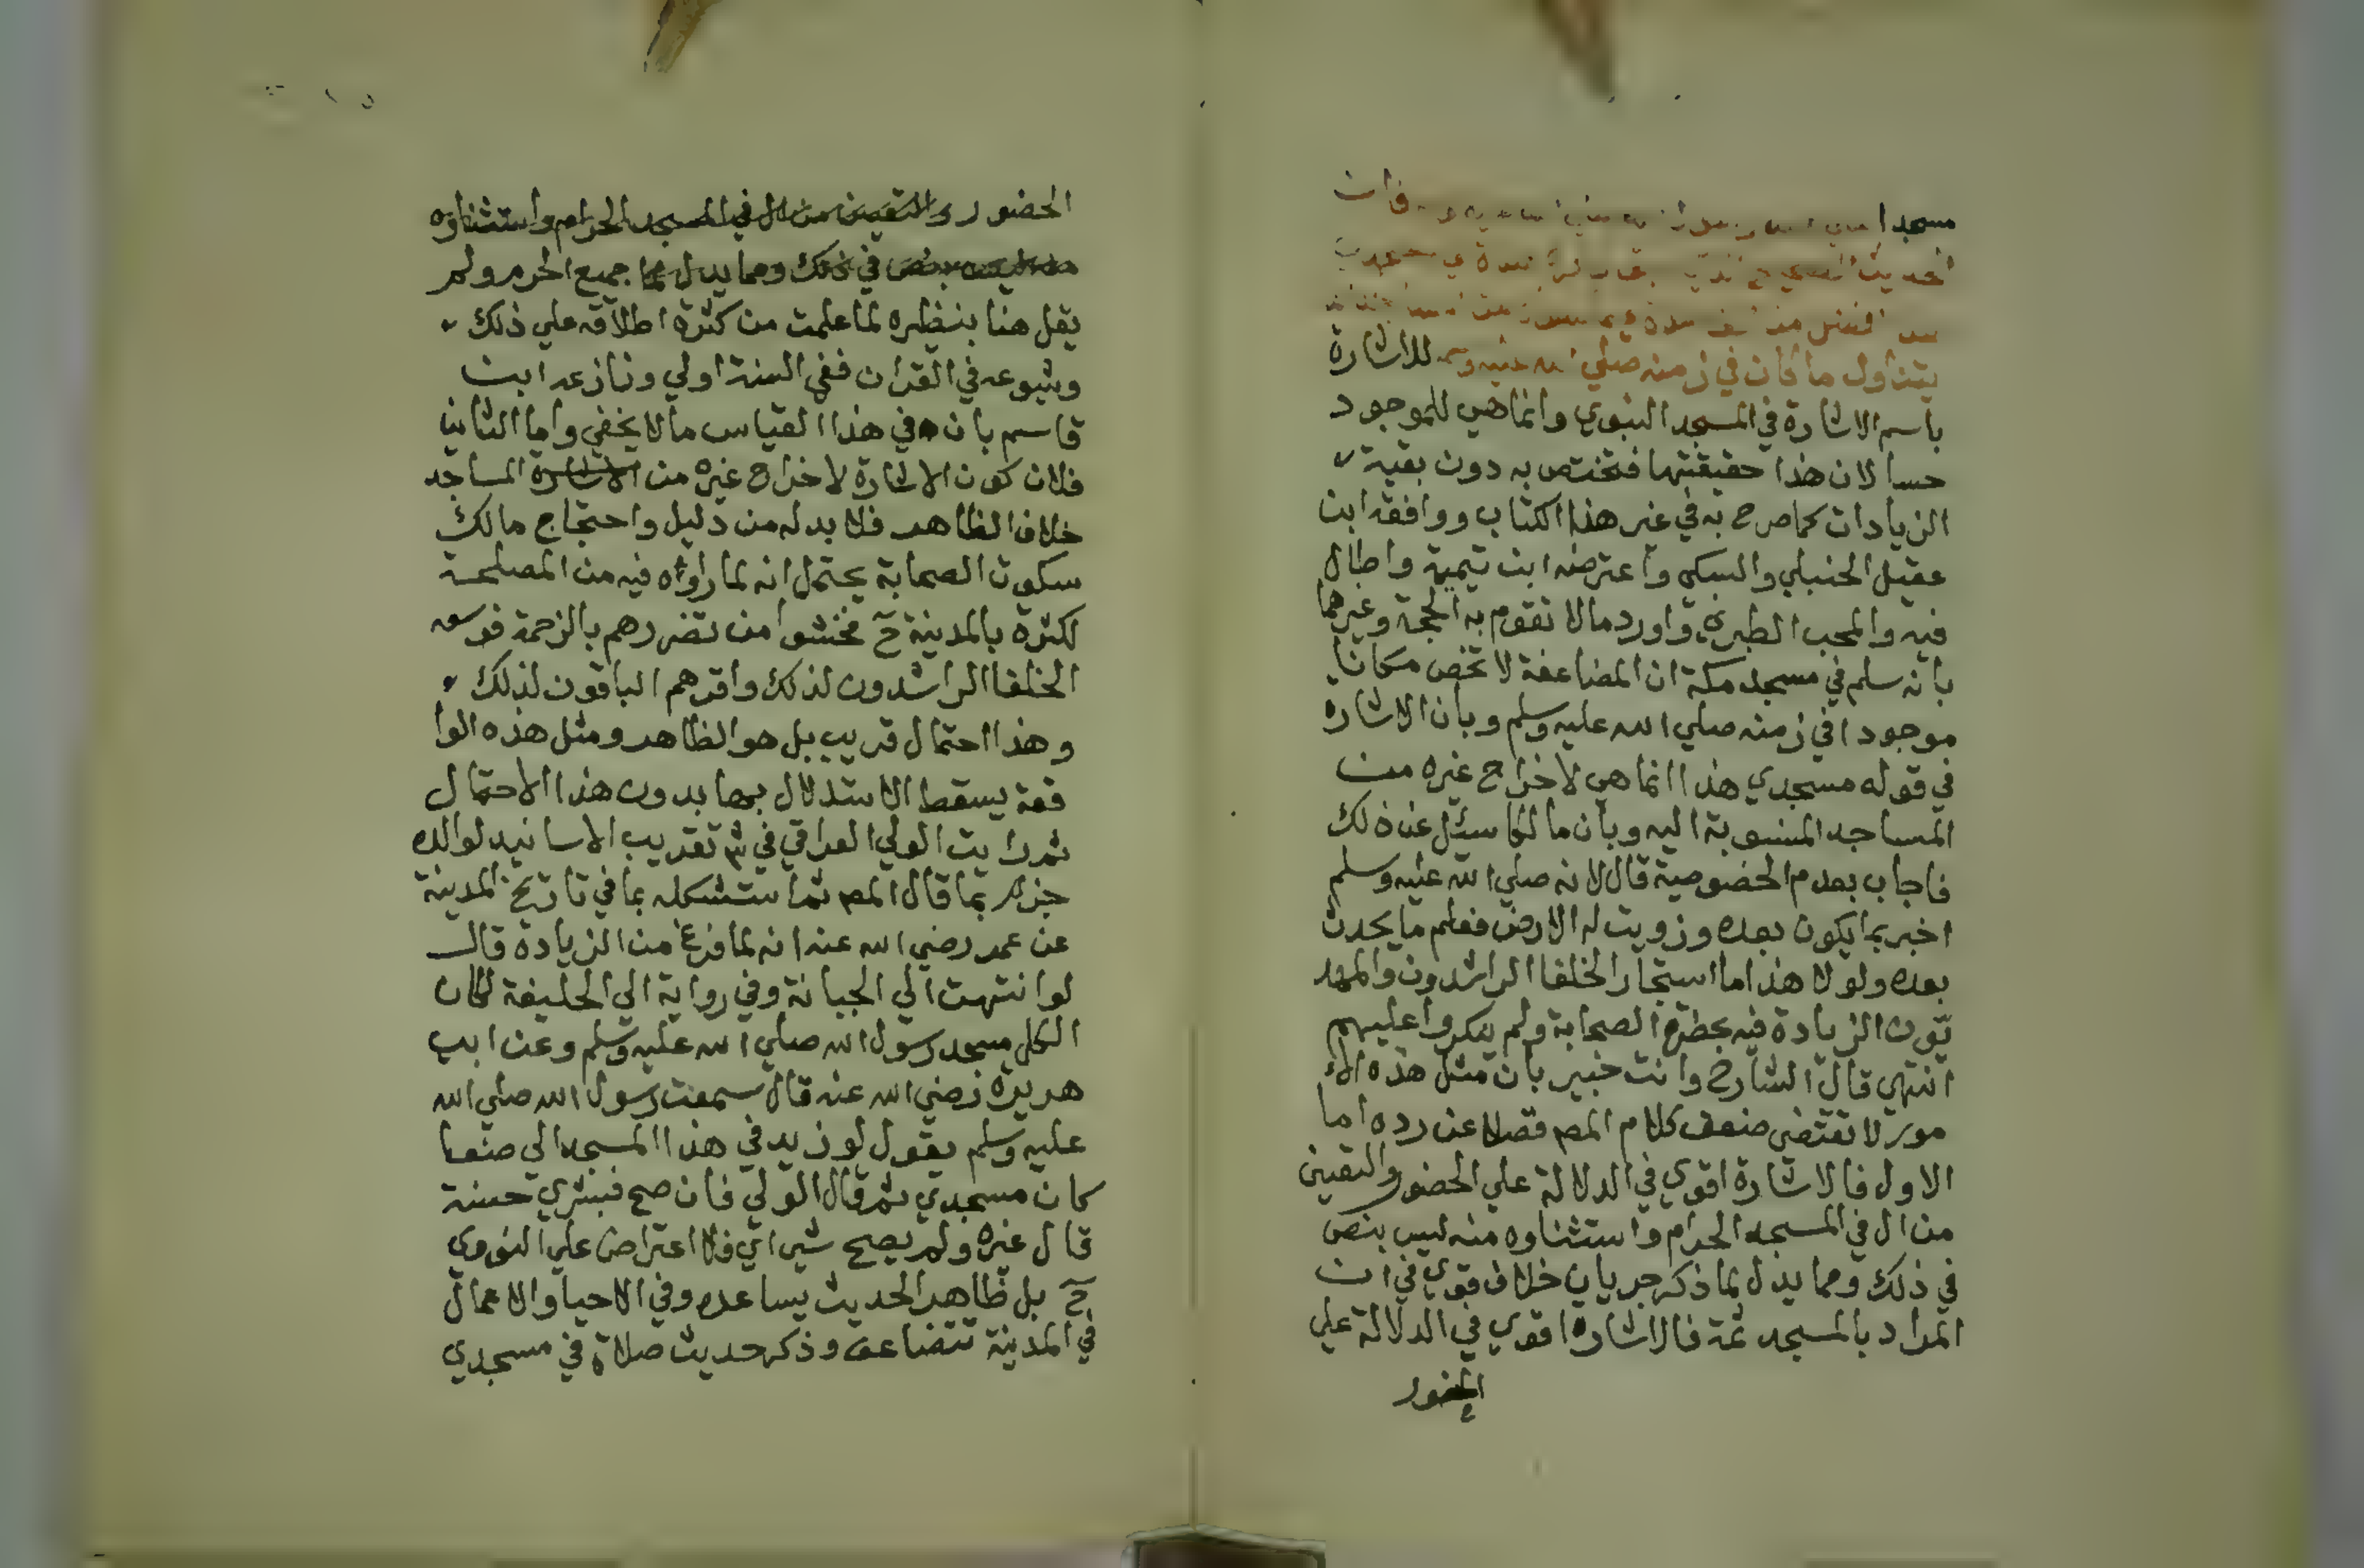 مسجدا
الحديث
افضل من
يتناول ما كان في زمنه صلي الله عليه وسلم للاشارة
باسم الاشارة في المسجد النبوي وانما هي للموجود
حسا لان هذا حقيقتها فتختص به دون بقية
الزيادات كما صرح به في غير هذا الكتاب ووافقه ابن
عقيل الحنبلي والسبكي واعترضه ابن تيمية واطال
فيه والمحب الطبري واورد مالا تقوم به الحجة وغيرهما
بانه سلم في مسجد مكة ان المضاعفة لا تخص مكانا
موجودا في زمنه صلي الله عليه وسلم وبان الاشارة
في قوله مسجدي هذا انما هي لاخراج غيره من
المساجد المنسوبة اليه وبان مالكا سئل عن ذلك
فاجاب بعدم الخصوصية قال لانه صلي الله عليه وسلم
اخبر بما يكون بعده وزويت له الارض فعلم ما يحدث
بعده ولولا هذا ما استجاز الخلفا الراشدون والمهد
يون الزيادة فيه بحظرة الصحابة ولم ينكروا عليهم
انتهي قال الشارح وانت خبير بان مثل هذه الا
مور لا تقتضي ضعف كلام المص فضلا عن رده اما
الاول فالاشارة اقوي في الدلالة علي الحضور والتعيين
من ال في المسجد الحرام واستثناوه منه ليس بنص
في ذلك ومما يدل لما ذكر جريان خلاف قوي في ان
المراد بالمسجد ثمة فالاشارة اقوي في الدلالة علي
الحضور
الحضور والتعيين من ال في المسجد الحرام واستثناوه
في ذلك ومما يدل لما جميع الحرم ولم
يقل هنا بنظيره لما علمت من كثرة اطلاقه علي ذلك
وشيوعه في القران ففي السنة اولي ونازعه ابن
قاسم بان في هذا القياس مالا يخفي واما الثاني
فلان كون الاشارة لاخراج غيره من الاشارة المساجد
خلاف الظاهر فلا بد له من دليل واحتجاج مالك
سكوت الصحابة يحتمل انه لما راوه فيه من المصلحة
لكثرة بالمدينة ح فخشوا من تضررهم بالزحمة فوسعه
الخلفا الراشدون لذلك واقرهم الباقون لذلك
وهذا احتمال قريب بل هو الظاهر ومثل هذه الوا
قعة يسقط الاستدلال بها بدون هذا الاحتمال
ثم رايت الولي العراقي في شرح تقريب الاسانيد لوالده
جزم بما قال المص ثم استشكله بما في تاريخ المدينة
عن عمر رضي الله عنه انه لما فرغ من الزيادة قال
لو انتهت الي الجبانة وفي رواية الي الحليفة لكان
الكل مسجد رسول الله صلي الله عليه وسلم وعن ابي
هريرة رضي الله عنه قال سمعت رسول الله صلي الله
عليه وسلم يقول لو زيد في هذا المسجد الي صنعا
كان مسجدي ثم قال الولي فان صح فبشري حسنة
قال غيره ولم يصح شي اي فلا اعتراض علي النووي
ح بل ظاهر الحديث يساعده وفي الاحيا والاعمال
في المدينة تتضاعف وذكر حديث صلاة في مسجدي